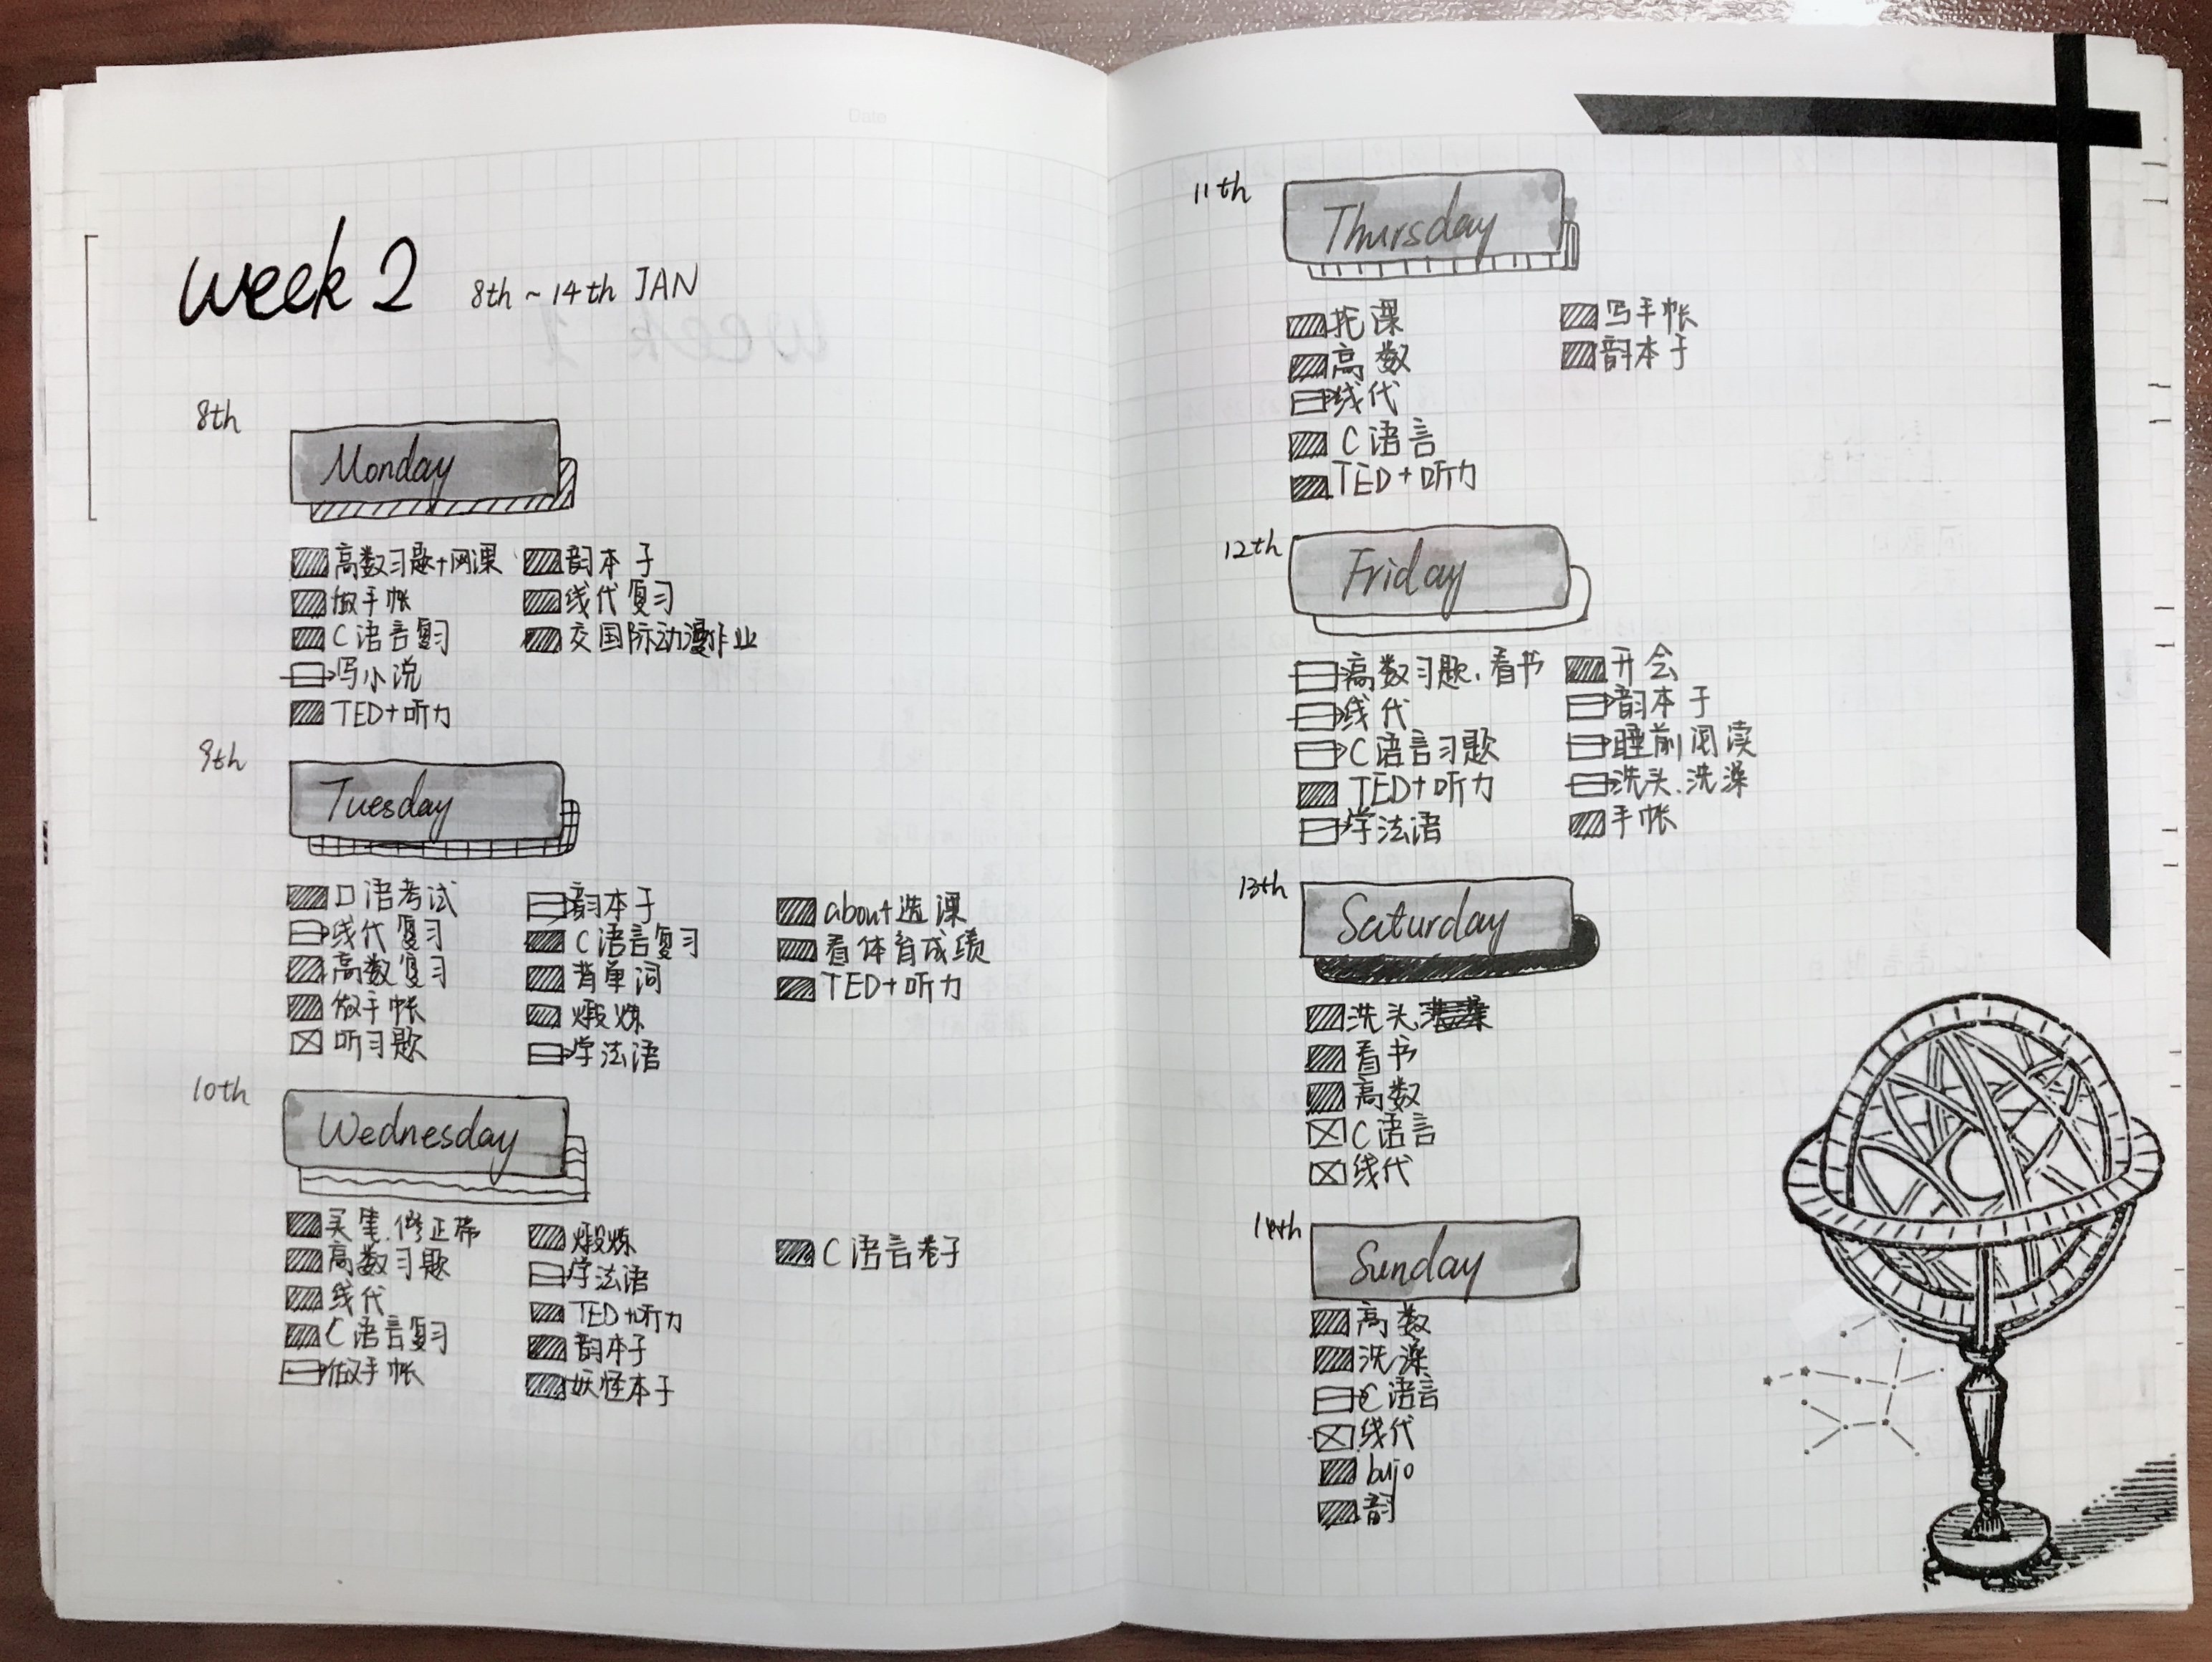 Date
week 2 8th ~ 14th JAN
8th
Monday
高数习题+网课
做手帐
C语言复习
写小说
TED+听力
韵本子
线代复习
交国际动漫作业
9th
Tuesday
口语考试
线代复习
高数复习
做手帐
听习题
韵本子
C语言复习
背单词
煅炼
学法语
about选课
看体育成绩
TED+听力
10th
Wednesday
买笔.修正带
高数习题
线代
C语言复习
做手帐
煅炼
学法语
TED+听力
韵本子
妖怪本子
C语言卷子
11th
Thursday
托课
高数
线代
C语言
TED+听力
写手帐
韵本子
12th
Friday
高数习题.看书
线代
C语言习题
TED+听力
学法语
开会
韵本子
睡前阅读
洗头.洗澡
手帐
13th
Saturday
洗头.
看书
高数
C语言
线代
14th
Sunday
高数
洗澡
C语言
线代
bujo
韵